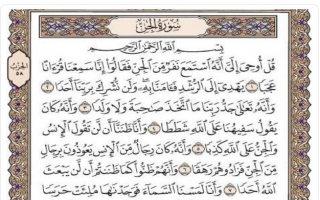 سُورَةُ الجِنِّ
بِسْمِ اللَّهِ الرَّحْمَٰنِ الرَّحِيمِ
قُلْ أُوحِيَ إِلَيَّ أَنَّهُ اسْتَمَعَ نَفَرٌ مِّنَ الْجِنِّ فَقَالُوا إِنَّا سَمِعْنَا قُرْءَانًا
عَجَبًا ١ يَهْدِي إِلَى الرُّشْدِ فَـَٔامَنَّا بِهِ وَلَن نُّشْرِكَ بِرَبِّنَا أَحَدًا ٢
وَأَنَّهُ تَعَالَىٰ جَدُّ رَبِّنَا مَا اتَّخَذَ صَاحِبَةً وَلَا وَلَدًا ٣ وَأَنَّهُ كَانَ
يَقُولُ سَفِيهُنَا عَلَى اللَّهِ شَطَطًا ٤ وَأَنَّا ظَنَنَّا أَن لَّن تَقُولَ الْإِنسُ
وَالْجِنُّ عَلَى اللَّهِ كَذِبًا ٥ وَأَنَّهُ كَانَ رِجَالٌ مِّنَ الْإِنسِ يَعُوذُونَ بِرِجَالٍ
مِّنَ الْجِنِّ فَزَادُوهُمْ رَهَقًا ٦ وَأَنَّهُمْ ظَنُّوا كَمَا ظَنَنتُمْ أَن لَّن يَبْعَثَ
اللَّهُ أَحَدًا ٧ وَأَنَّا لَمَسْنَا السَّمَاءَ فَوَجَدْنَاهَا مُلِئَتْ حَرَسًا
الحزب
٥٨